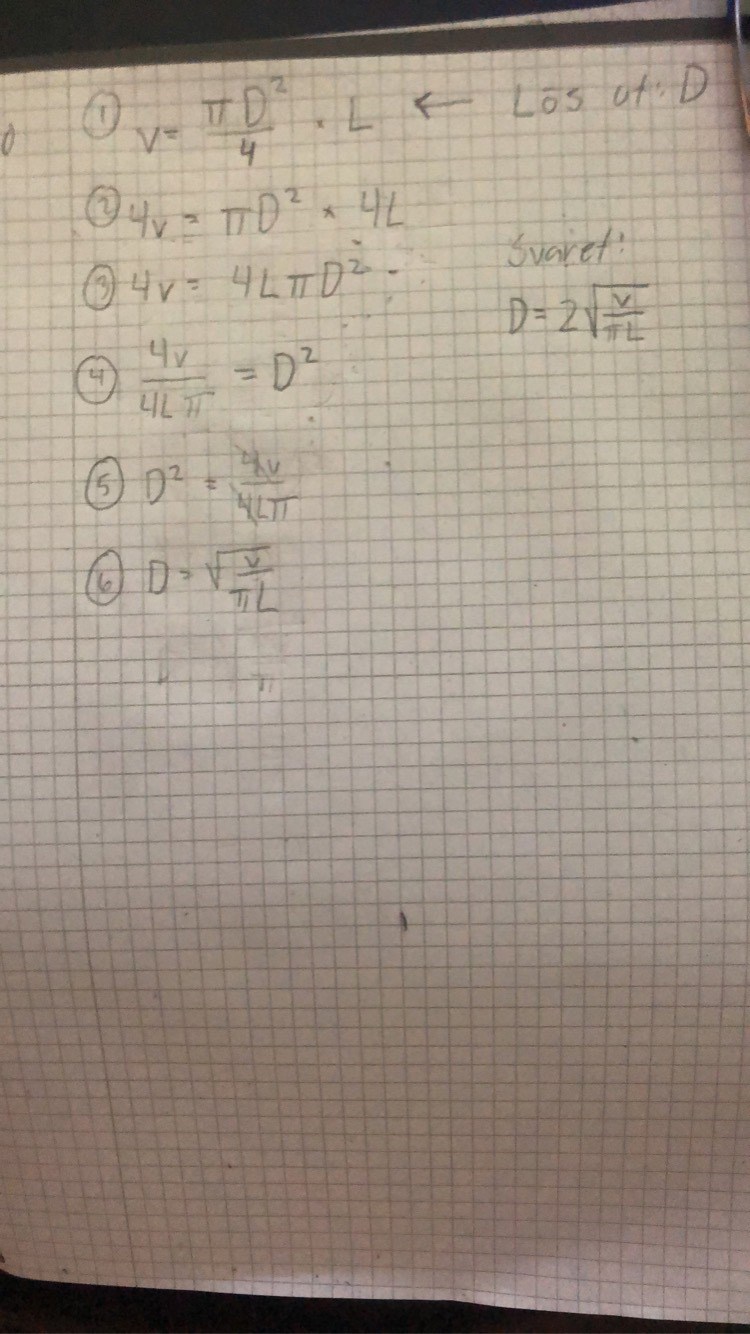 ① V = πD²/4 · L ← Lös ut: D
② 4v = πD² * 4L
③ 4v = 4LπD²
④ 4v/4Lπ = D²
⑤ D² = 4v/4Lπ
⑥ D = √(v/πL)
Svaret:
D = 2√(v/πL)